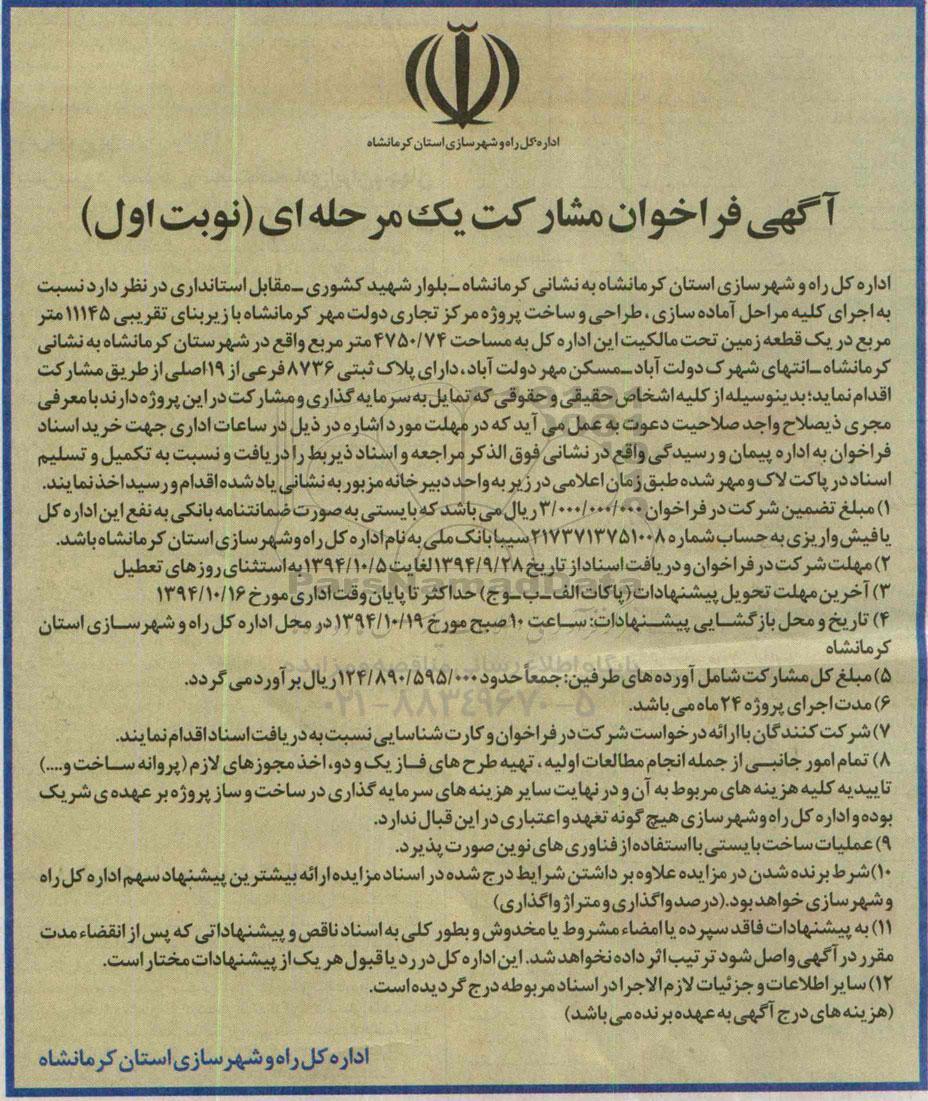 اداره کل راه و شهرسازی استان کرمانشاه
آگهی فراخوان مشارکت یک مرحله ای (نوبت اول)
اداره کل راه و شهرسازی استان کرمانشاه به نشانی کرمانشاه ـ بلوار شهید کشوری ـ مقابل استانداری در نظر دارد نسبت
به اجرای کلیه مراحل آماده سازی ، طراحی و ساخت پروژه مرکز تجاری دولت مهر کرمانشاه با زیربنای تقریبی ۱۱۱۴۵ متر
مربع در یک قطعه زمین تحت مالکیت این اداره کل به مساحت ۴۷۵۰/۷۴ متر مربع واقع در شهرستان کرمانشاه به نشانی
کرمانشاه ـ انتهای شهرک دولت آباد ـ مسکن مهر دولت آباد، دارای پلاک ثبتی ۸۷۳۶ فرعی از ۱۹ اصلی از طریق مشارکت
اقدام نماید؛ بدینوسیله از کلیه اشخاص حقیقی و حقوقی که تمایل به سرمایه گذاری و مشارکت در این پروژه دارند با معرفی
مجری ذیصلاح واجد صلاحیت دعوت به عمل می آید که در مهلت مورد اشاره در ذیل در ساعات اداری جهت خرید اسناد
فراخوان به اداره پیمان و رسیدگی واقع در نشانی فوق الذکر مراجعه و اسناد ذیربط را دریافت و نسبت به تکمیل و تسلیم
اسناد در پاکت لاک و مهر شده طبق زمان اعلامی در زیر به واحد دبیرخانه مزبور به نشانی یاد شده اقدام و رسید اخذ نمایند.
۱) مبلغ تضمین شرکت در فراخوان ۳/۰۰۰/۰۰۰/۰۰۰ ریال می باشد که بایستی به صورت ضمانتنامه بانکی به نفع این اداره کل
یا فیش واریزی به حساب شماره ۲۱۷۳۷۱۳۷۵۱۰۰۸ سیبا بانک ملی به نام اداره کل راه وشهرسازی استان کرمانشاه باشد.
۲) مهلت شرکت در فراخوان و دریافت اسناد از تاریخ ۱۳۹۴/۹/۲۸ لغایت ۱۳۹۴/۱۰/۵ به استثنای روزهای تعطیل
۳) آخرین مهلت تحویل پیشنهادات (پاکات الف ـ ب ـ وج) حداکثر تا پایان وقت اداری مورخ ۱۳۹۴/۱۰/۱۶
۴) تاریخ و محل بازگشایی پیشنهادات: ساعت ۱۰ صبح مورخ ۱۳۹۴/۱۰/۱۹ در محل اداره کل راه و شهرسازی استان
کرمانشاه
۵) مبلغ کل مشارکت شامل آورده های طرفین: جمعاً حدود ۱۲۴/۸۹۰/۵۹۵/۰۰۰ ریال برآورد می گردد.
۶) مدت اجرای پروژه ۲۴ ماه می باشد.
۷) شرکت کنندگان با ارائه درخواست شرکت در فراخوان و کارت شناسایی نسبت به دریافت اسناد اقدام نمایند.
۸) تمام امور جانبی از جمله انجام مطالعات اولیه ، تهیه طرح های فاز یک و دو، اخذ مجوزهای لازم (پروانه ساخت و....)
تاییدیه کلیه هزینه های مربوط به آن و در نهایت سایر هزینه های سرمایه گذاری در ساخت و ساز پروژه بر عهده ی شریک
بوده و اداره کل راه وشهرسازی هیچ گونه تعهد و اعتباری در این قبال ندارد.
۹) عملیات ساخت بایستی با استفاده از فناوری های نوین صورت پذیرد.
۱۰) شرط برنده شدن در مزایده علاوه بر داشتن شرایط درج شده در اسناد مزایده ارائه بیشترین پیشنهاد سهم اداره کل راه
و شهرسازی خواهد بود.(درصد واگذاری و متراژ واگذاری)
۱۱) به پیشنهادات فاقد سپرده یا امضاء مشروط یا مخدوش و بطور کلی به اسناد ناقص و پیشنهاداتی که پس از انقضاء مدت
مقرر در آگهی واصل شود ترتیب اثر داده نخواهد شد. این اداره کل در رد یا قبول هر یک از پیشنهادات مختار است.
۱۲) سایر اطلاعات و جزئیات لازم الاجرا در اسناد مربوطه درج گردیده است.
(هزینه های درج آگهی به عهده برنده می باشد)
اداره کل راه و شهرسازی استان کرمانشاه
ParsNamadData
پایگاه اطلاع رسانی مناقصه و مزایده
۰۲۱-۸۸۳۴۹۶۷۰-۵